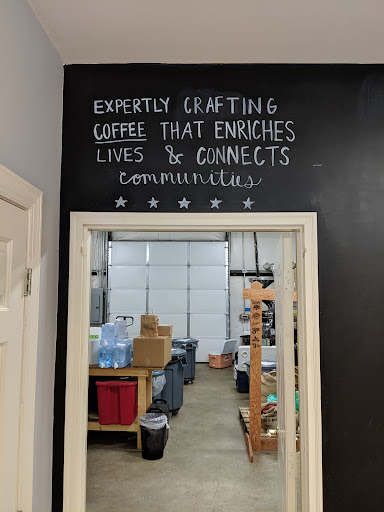 EXPERTLY CRAFTING
COFFEE THAT ENRICHES
LIVES & CONNECTS
communities